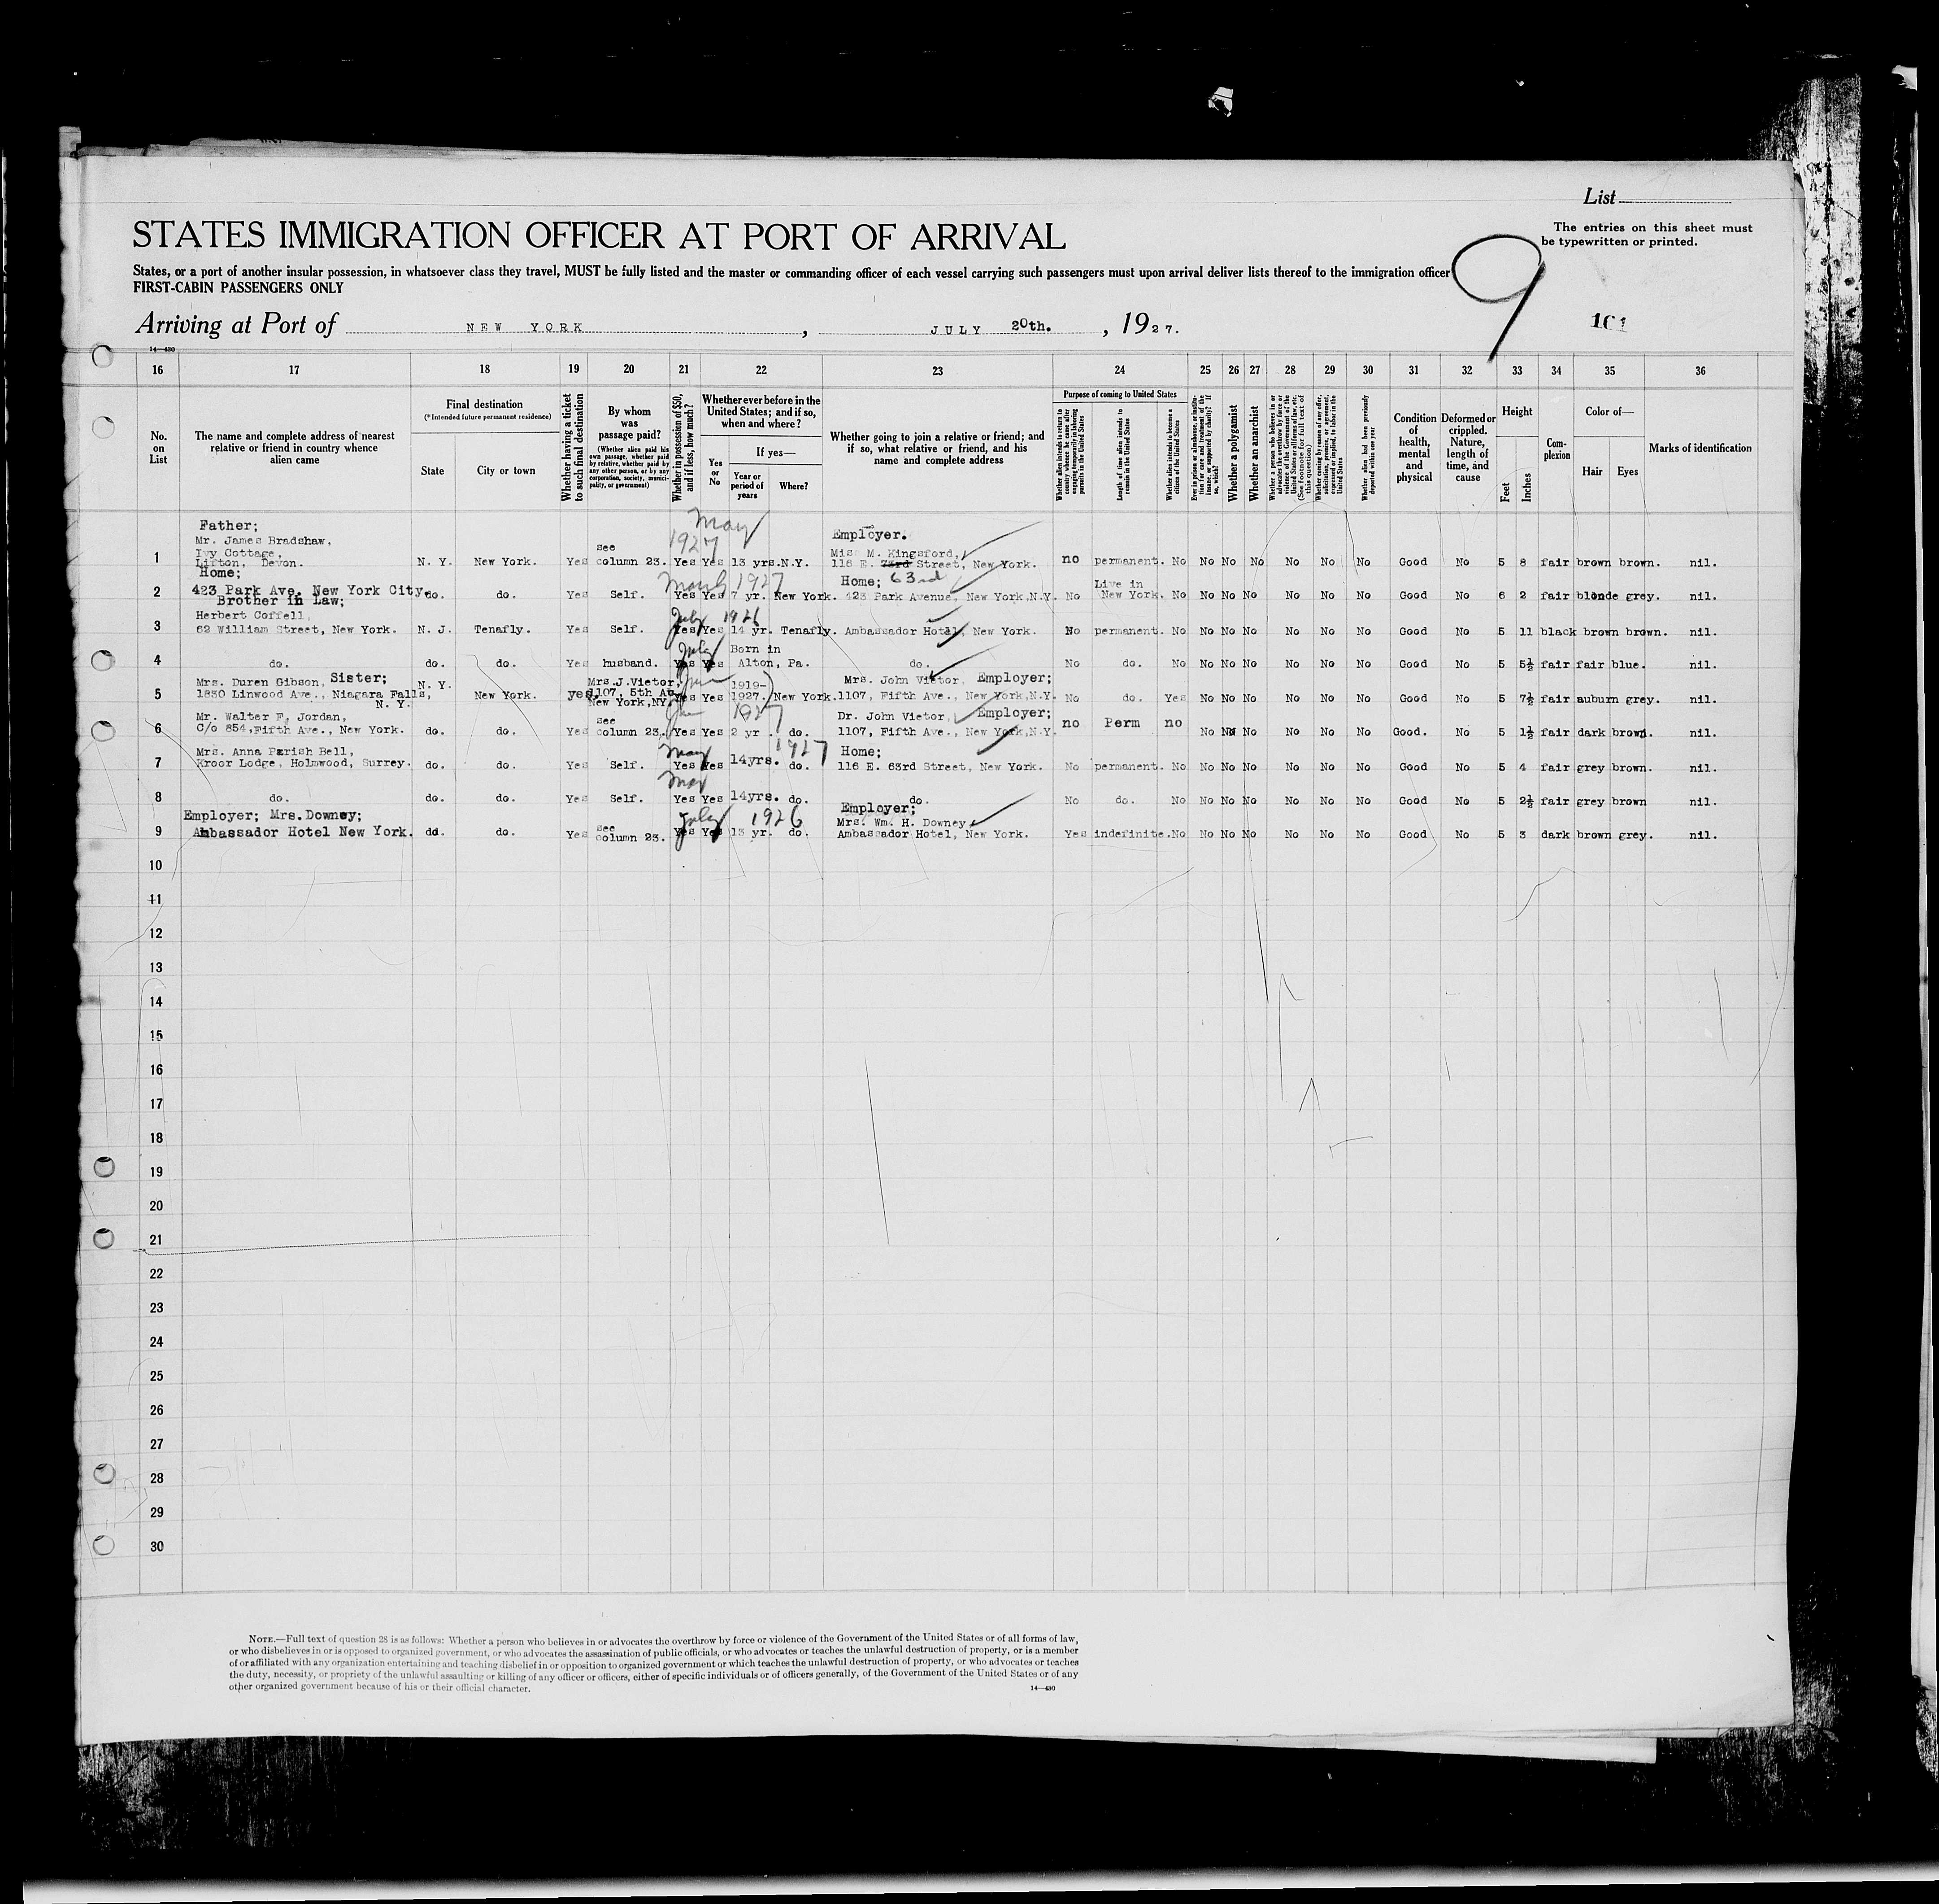 List
STATES IMMIGRATION OFFICER AT PORT OF ARRIVAL
The entries on this sheet must
be typewritten or printed.
States, or a port of another insular possession, in whatsoever class they travel, MUST be fully listed and the master or commanding officer of each vessel carrying such passengers must upon arrival deliver lists thereof to the immigration officer
FIRST-CABIN PASSENGERS ONLY
9
Arriving at Port of NEW YORK, JULY 20th., 1927.
14—430
16 17 18 19 20 21 22 23 24 25 26 27 28 29 30 31 32 33 34 35 36
No. on List
The name and complete address of nearest relative or friend in country whence alien came
Final destination
(*Intended future permanent residence)
State
City or town
Whether having a ticket to such final destination
By whom was passage paid?
(Whether alien paid his own passage, whether paid by relative, whether paid by any other person, or by any corporation, society, municipality, or government)
Whether in possession of $50, and if less, how much?
Whether ever before in the United States; and if so, when and where?
Yes or No
If yes—
Year or period of years
Where?
Whether going to join a relative or friend; and if so, what relative or friend, and his name and complete address
Purpose of coming to United States
Whether alien intends to return to country whence he came after engaging temporarily in laboring pursuits in the United States
Length of time alien intends to remain in the United States
Whether alien intends to become a citizen of the United States
Ever in prison or almshouse, or institution for care and treatment of the insane, or supported by charity? If so, which?
Whether a polygamist
Whether an anarchist
Whether a person who believes in or advocates the overthrow by force or violence of the Government of the United States or all forms of law, etc. (See footnote for full text of this question)
Whether coming by reason of any offer, solicitation, promise, or agreement, expressed or implied, to labor in the United States
Whether alien had been previously deported within one year
Condition of health, mental and physical
Deformed or crippled. Nature, length of time, and cause
Height
Feet
Inches
Complexion
Color of—
Hair
Eyes
Marks of identification
May 1927
Father;
Employer.
Mr. James Bradshaw,
Miss M. Kingsford,
Ivy Cottage,
see
1 Lifton, Devon. N. Y. New York. Yes column 23. Yes Yes 13 yrs. N.Y. 116 E. 73rd Street, New York. no permanent. No No No No No No No Good No 5 8 fair brown brown. nil.
63rd
Home;
March 1927
Home;
Live in
2 423 Park Ave. New York City. do. do. Yes Self. Yes Yes 7 yr. New York. 423 Park Avenue, New York,N.Y. No New York. No No No No No No No Good No 6 2 fair blonde grey. nil.
Brother in Law;
July 1926
Herbert Coffell,
3 62 William Street, New York. N. J. Tenafly. Yes Self. Yes Yes 14 yr. Tenafly. Ambassador Hotel, New York. No permanent. No No No No No No No Good No 5 11 black brown brown. nil.
July Born in
4 do. do. do. Yes husband. Yes Yes Alton, Pa. do. No do. No No No No No No No Good No 5 5½ fair fair blue. nil.
Mrs. Duren Gibson, Sister; N. Y. Mrs.J.Vietor, 1919- Mrs. John Vietor, Employer;
5 1830 Linwood Ave., Niagara Falls, New York. yes. 1107, 5th Av Yes Yes 1927. New York. 1107, Fifth Ave., New York,N.Y. No do. Yes No No No No No No Good No 5 7½ fair auburn grey. nil.
N. Y. New York,NY.
1927
Mr. Walter F. Jordan, see Dr. John Vietor, Employer;
6 C/o 854,Fifth Ave., New York. do. do. Yes column 23. Yes Yes 2 yr. do. 1107, Fifth Ave., New York,N.Y. no Perm no No No No No No No Good. No 5 1½ fair dark brown. nil.
May 1927
Mrs. Anna Parish Bell, Home;
7 Kroor Lodge, Holmwood, Surrey. do. do. Yes Self. Yes Yes 14yrs. do. 116 E. 63rd Street, New York. No permanent. No No No No No No No Good No 5 4 fair grey brown. nil.
May
8 do. do. do. Yes Self. Yes Yes 14yrs. do. do. No do. No No No No No No No Good No 5 2½ fair grey brown nil.
Employer; Mrs.Downey; July 1926 Employer;
see Mrs. Wm. H. Downey
9 Ambassador Hotel New York. do. do. Yes column 23. Yes Yes 13 yr. do. Ambassador Hotel, New York. Yes indefinite. No No No No No No No Good No 5 3 dark brown grey. nil.
10
11
12
13
14
15
16
17
18
19
20
21
22
23
24
25
26
27
28
29
30
NOTE.—Full text of question 28 is as follows: Whether a person who believes in or advocates the overthrow by force or violence of the Government of the United States or of all forms of law,
or who disbelieves in or is opposed to organized government, or who advocates the assassination of public officials, or who advocates or teaches the unlawful destruction of property, or is a member
of or affiliated with any organization entertaining and teaching disbelief in or opposition to organized government or which teaches the unlawful destruction of property, or who advocates or teaches
the duty, necessity, or propriety of the unlawful assaulting or killing of any officer or officers, either of specific individuals or of officers generally, of the Government of the United States or of any
other organized government because of his or their official character.
14—430